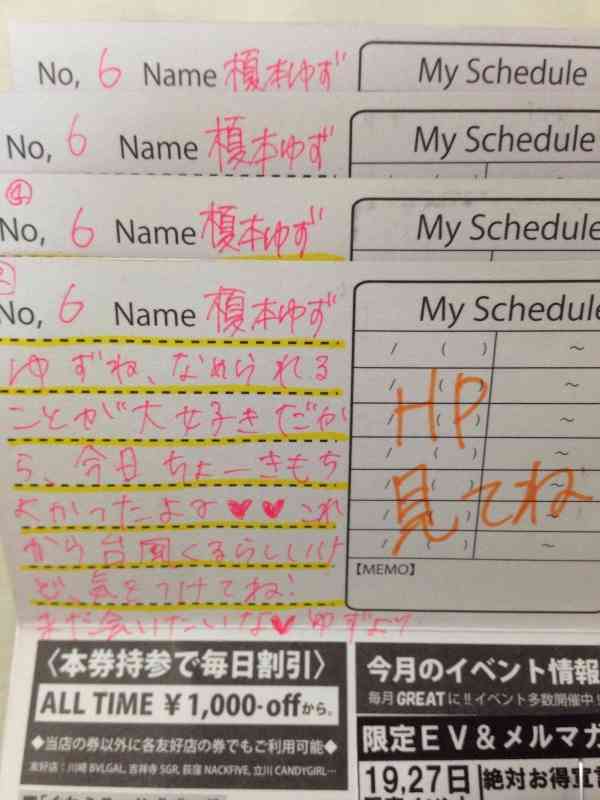 No, 6 Name 榎本ゆず My Schedule
No, 6 Name 榎本ゆず My Schedule
④
No, 6 Name 榎本ゆず My Schedule
No, 6 Name 榎本ゆず My Schedule
ゆずね、なめられる
ことが大好きだか
ら、今日ちょーきもち
よかったよ♥♥これ
から台風くるらしいけ
ど、気をつけてね!
また会いたいな♥ゆずより
/ ( ) ~
/ ( ) ~
/ ( ) ~
/ ( ) ~
/ ( ) ~
/ ( ) ~
/ ( ) ~
HP
見てね
【MEMO】
〈本券持参で毎日割引〉
ALL TIME ¥1,000-offから。
◆当店の券以外に各友好店の券でもご利用可能◆
友好店:川崎 BVLGAL, 吉祥寺 SGR, 荻窪 NACKFIVE, 立川 CANDYGIRL…
今月のイベント情報
毎月GREATに!!イベント多数開催中!
限定EV&メルマガ
19,27日 絶対お得宣言